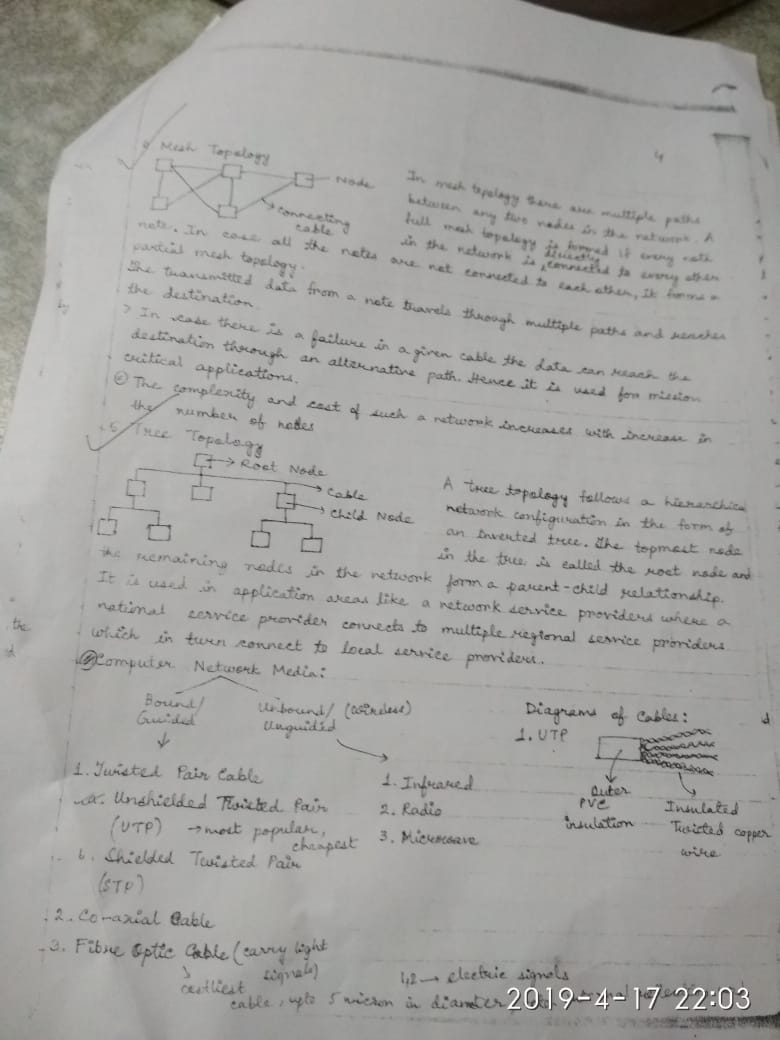 4
4. Mesh Topology
Node
connecting
cable
In mesh topology there are multiple paths
between any two nodes in the network. A
full mesh topology is formed if every note
in the network is directly connected to every other
note. In case all the notes are not connected to each other, It forms a
partial mesh topology.
The transmitted data from a note travels through multiple paths and reaches
the destination.
> In case there is a failure in a given cable the data can reach the
destination through an alternative path. Hence it is used for mission
critical applications.
The complexity and cost of such a network increases with increase in
the number of nodes
5. Tree Topology
→ Root Node
Cable
Child Node
A tree topology follows a hierarchica
network configuration in the form of
an inverted tree. The topmost node
in the tree is called the root node and
the remaining nodes in the network form a parent-child relationship.
It is used in application areas like a network service providers where a
national service provider connects to multiple regional service providers
which in turn connect to local service providers.
Computer Network Media:
Bound/
Guided
Unbound/ (wireless)
Unguided
1. Twisted Pair Cable
a. Unshielded Twisted Pair
(UTP) → most popular,
cheapest
b. Shielded Twisted Pair
(STP)
2. Co-axial Cable
3. Fibre Optic Cable (carry light
signals)
costliest
cable, upto 5 micron in diameter
1. Infrared
2. Radio
3. Microwave
1,2 → electric signals
Diagrams of Cables:
1. UTP
Outer
PVC
insulation
Insulated
Twisted copper
wire
the
d
by
d
2019-4-17 22:03